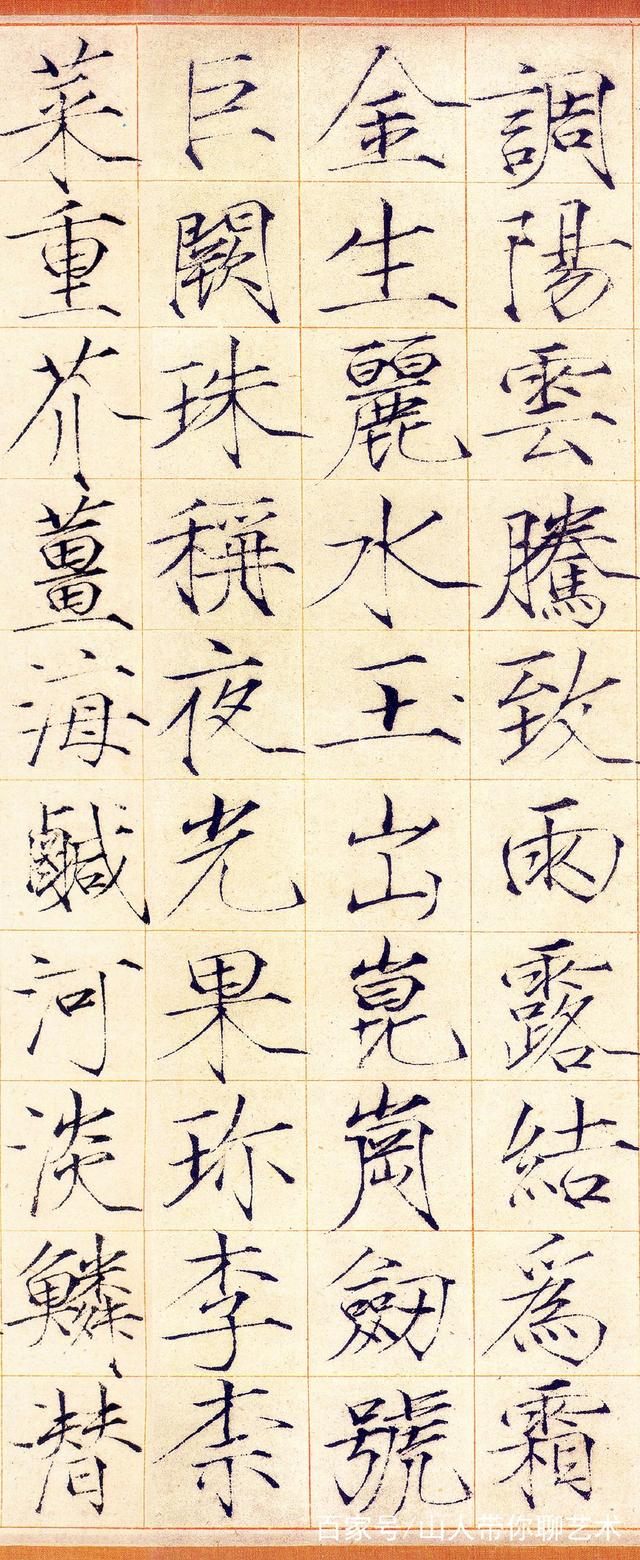 調陽雲騰致雨露結爲霜
金生麗水玉出崑崗劒號
巨闕珠稱夜光果珎李柰
菜重芥薑海鹹河淡鱗潛
百家号/山人带你聊艺术